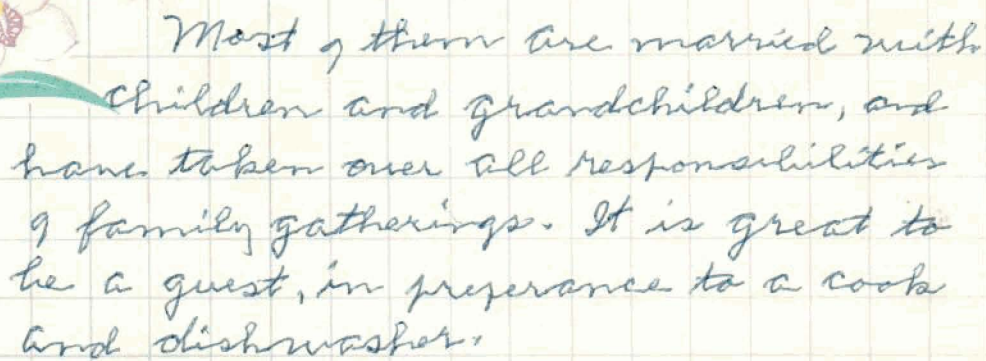 Most of them are married with
children and grandchildren, and
have taken over all responsibilities
of family gatherings. It is great to
be a guest, in preferance to a cook
and dishwasher.